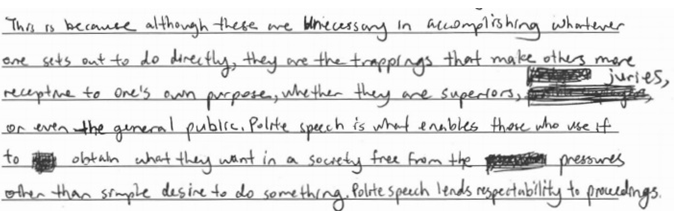 This is because although these are unnecessary in accomplishing whatever
one sets out to do directly, they are the trappings that make others more
receptive to one's own purpose, whether they are superiors, juries,
or even the general public. Polite speech is what enables those who use it
to obtain what they want in a society free from the pressures
other than simple desire to do something. Polite speech lends respectability to proceedings.